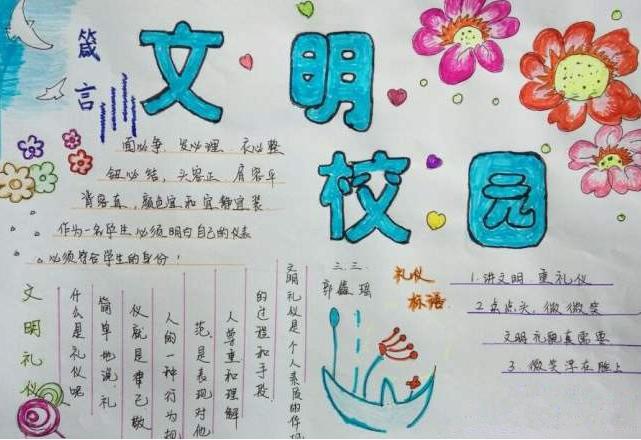 文明
校园
箴言
面必争 发必理 衣必整
钮必结,头容正 肩容平
背容直,颜色宜和宜静宜装
作为一名学生必须明白自己的仪表
必须符合学生的身份!
文明礼仪
什么是礼仪呢
简单地说,礼
仪就是律己敬
人的一种行为规
范,是表现对他
人尊重和理解
的过程和手段
文明礼仪是个人素质的体现
三.三
郭 瑶
礼仪
标语
1.讲文明 重礼仪
2.点点头,微微笑
文明礼貌真需要
3.微笑浮在脸上